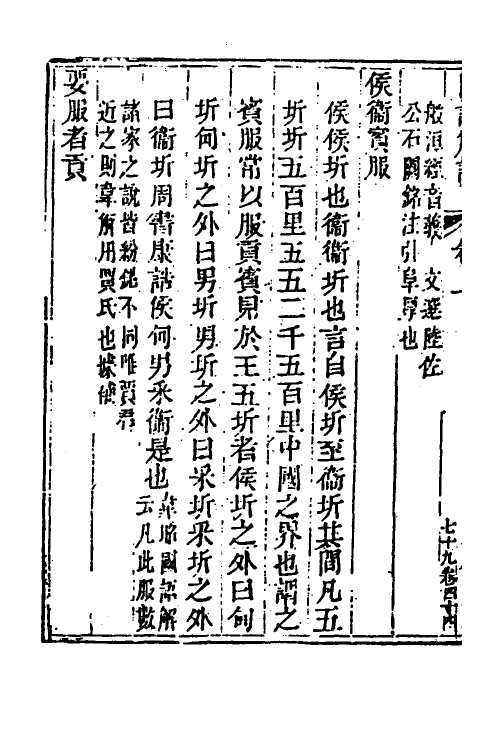 般涅經音義 文選陸佐
公石闕銘注引阜學也
侯衞賓服
侯侯圻也衞衞圻也言自侯圻至衞圻其間凡五
圻圻五百里五五二千五百里中國之界也謂之
賓服常以服貢賓見於王五圻者侯圻之外曰甸
圻甸圻之外曰男圻男圻之外曰采圻采圻之外
曰衞圻周書康誥侯甸男采衞是也韋昭國語解
云凡此服數
諸家之說皆紛錯不同唯賈君
近之則韋解用賈氏也據傅
要服者貢
七十九卷四十四